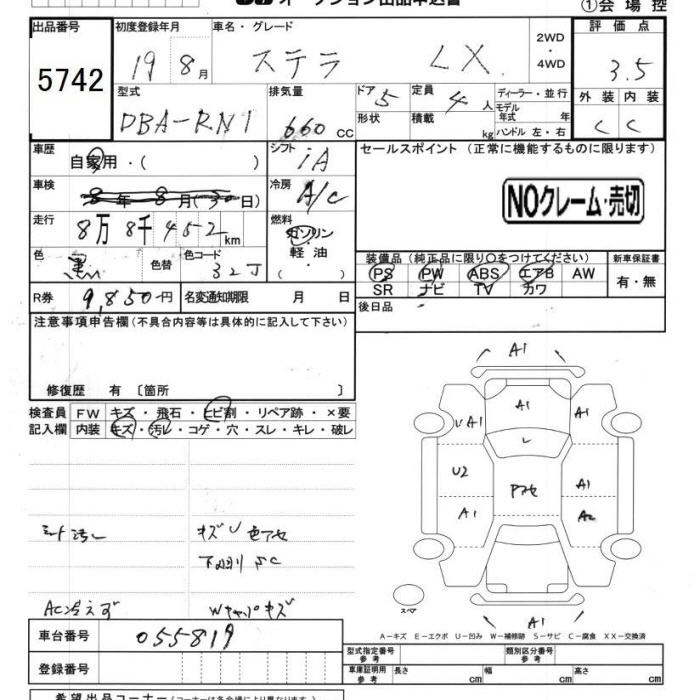 オークション出品申込書
①会場控
出品番号
5742
初度登録年月
19 8月
車名・グレード
ステラ LX
2WD
・
4WD
評価点
3.5
型式
DBA-RN1
排気量
660 CC
ドア 5
形状
定員 4人
積載 kg
ディーラー・並行
モデル年式 年
ハンドル 左・右
外装 内装
C C
車歴
自家用・( )
シフト
iA
セールスポイント (正常に機能するものに限ります)
NOクレーム・売切
車検
8年8月(30日)
冷房
A/C
走行
8万8千452km
燃料
ガソリン
・
軽油
( )
色
黒
色替
色コード
32J
装備品 (純正品に限り○をつけてください)
PS PW ABS エアB AW
SR ナビ TV カワ
新車保証書
有・無
R券 9,850円
名変通知期限 月 日
後日品
注意事項申告欄 (不具合内容等は具体的に記入して下さい)
修復歴 有 〔箇所 〕
検査員 FW キズ・飛石・ヒビ割・リペア跡・×要
記入欄 内装 キズ・汚レ・コゲ・穴・スレ・キレ・破レ
シート汚レ
キズU色アセ
下回りSC
AC冷えず
WキャパキズA1
A1
UA1
A1
L
U2
Pアセ
A1
A1
A2
A1
スペア
A-キズ E-エクボ U-凹み W-補修跡 S-サビ C-腐食 XX-交換済
車台番号
055819
登録番号
型式指定番号
参考
類別区分番号
参考
車庫証明用
参考
長さ cm
幅 cm
高さ cm
希望出品コーナー